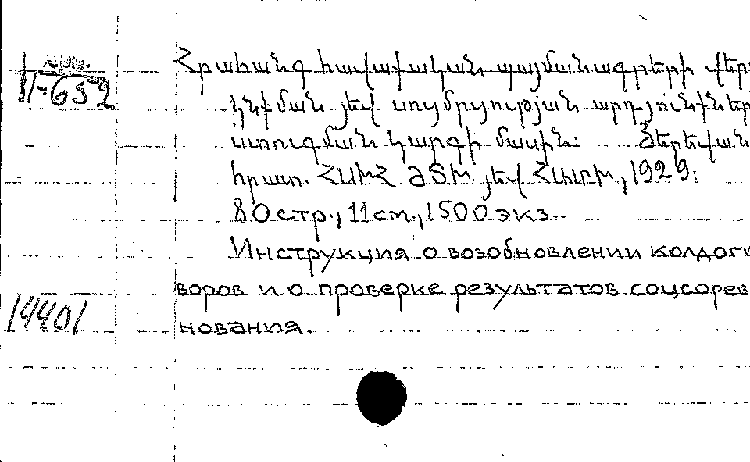 II-652
Հրահանգ հավաքական պայմանագրերի վեր
կնքման յեվ սոցմրցության արդյունքներ
ստուգման կարգի մասին: Յերեվան
հրատ. ՀԱՄԽ ՅԵՎ
80 стр., 11 см., 1500 экз.
Инструкция о возобновлении колдого
воров и о проверке результатов соцсорев
нования.
14401